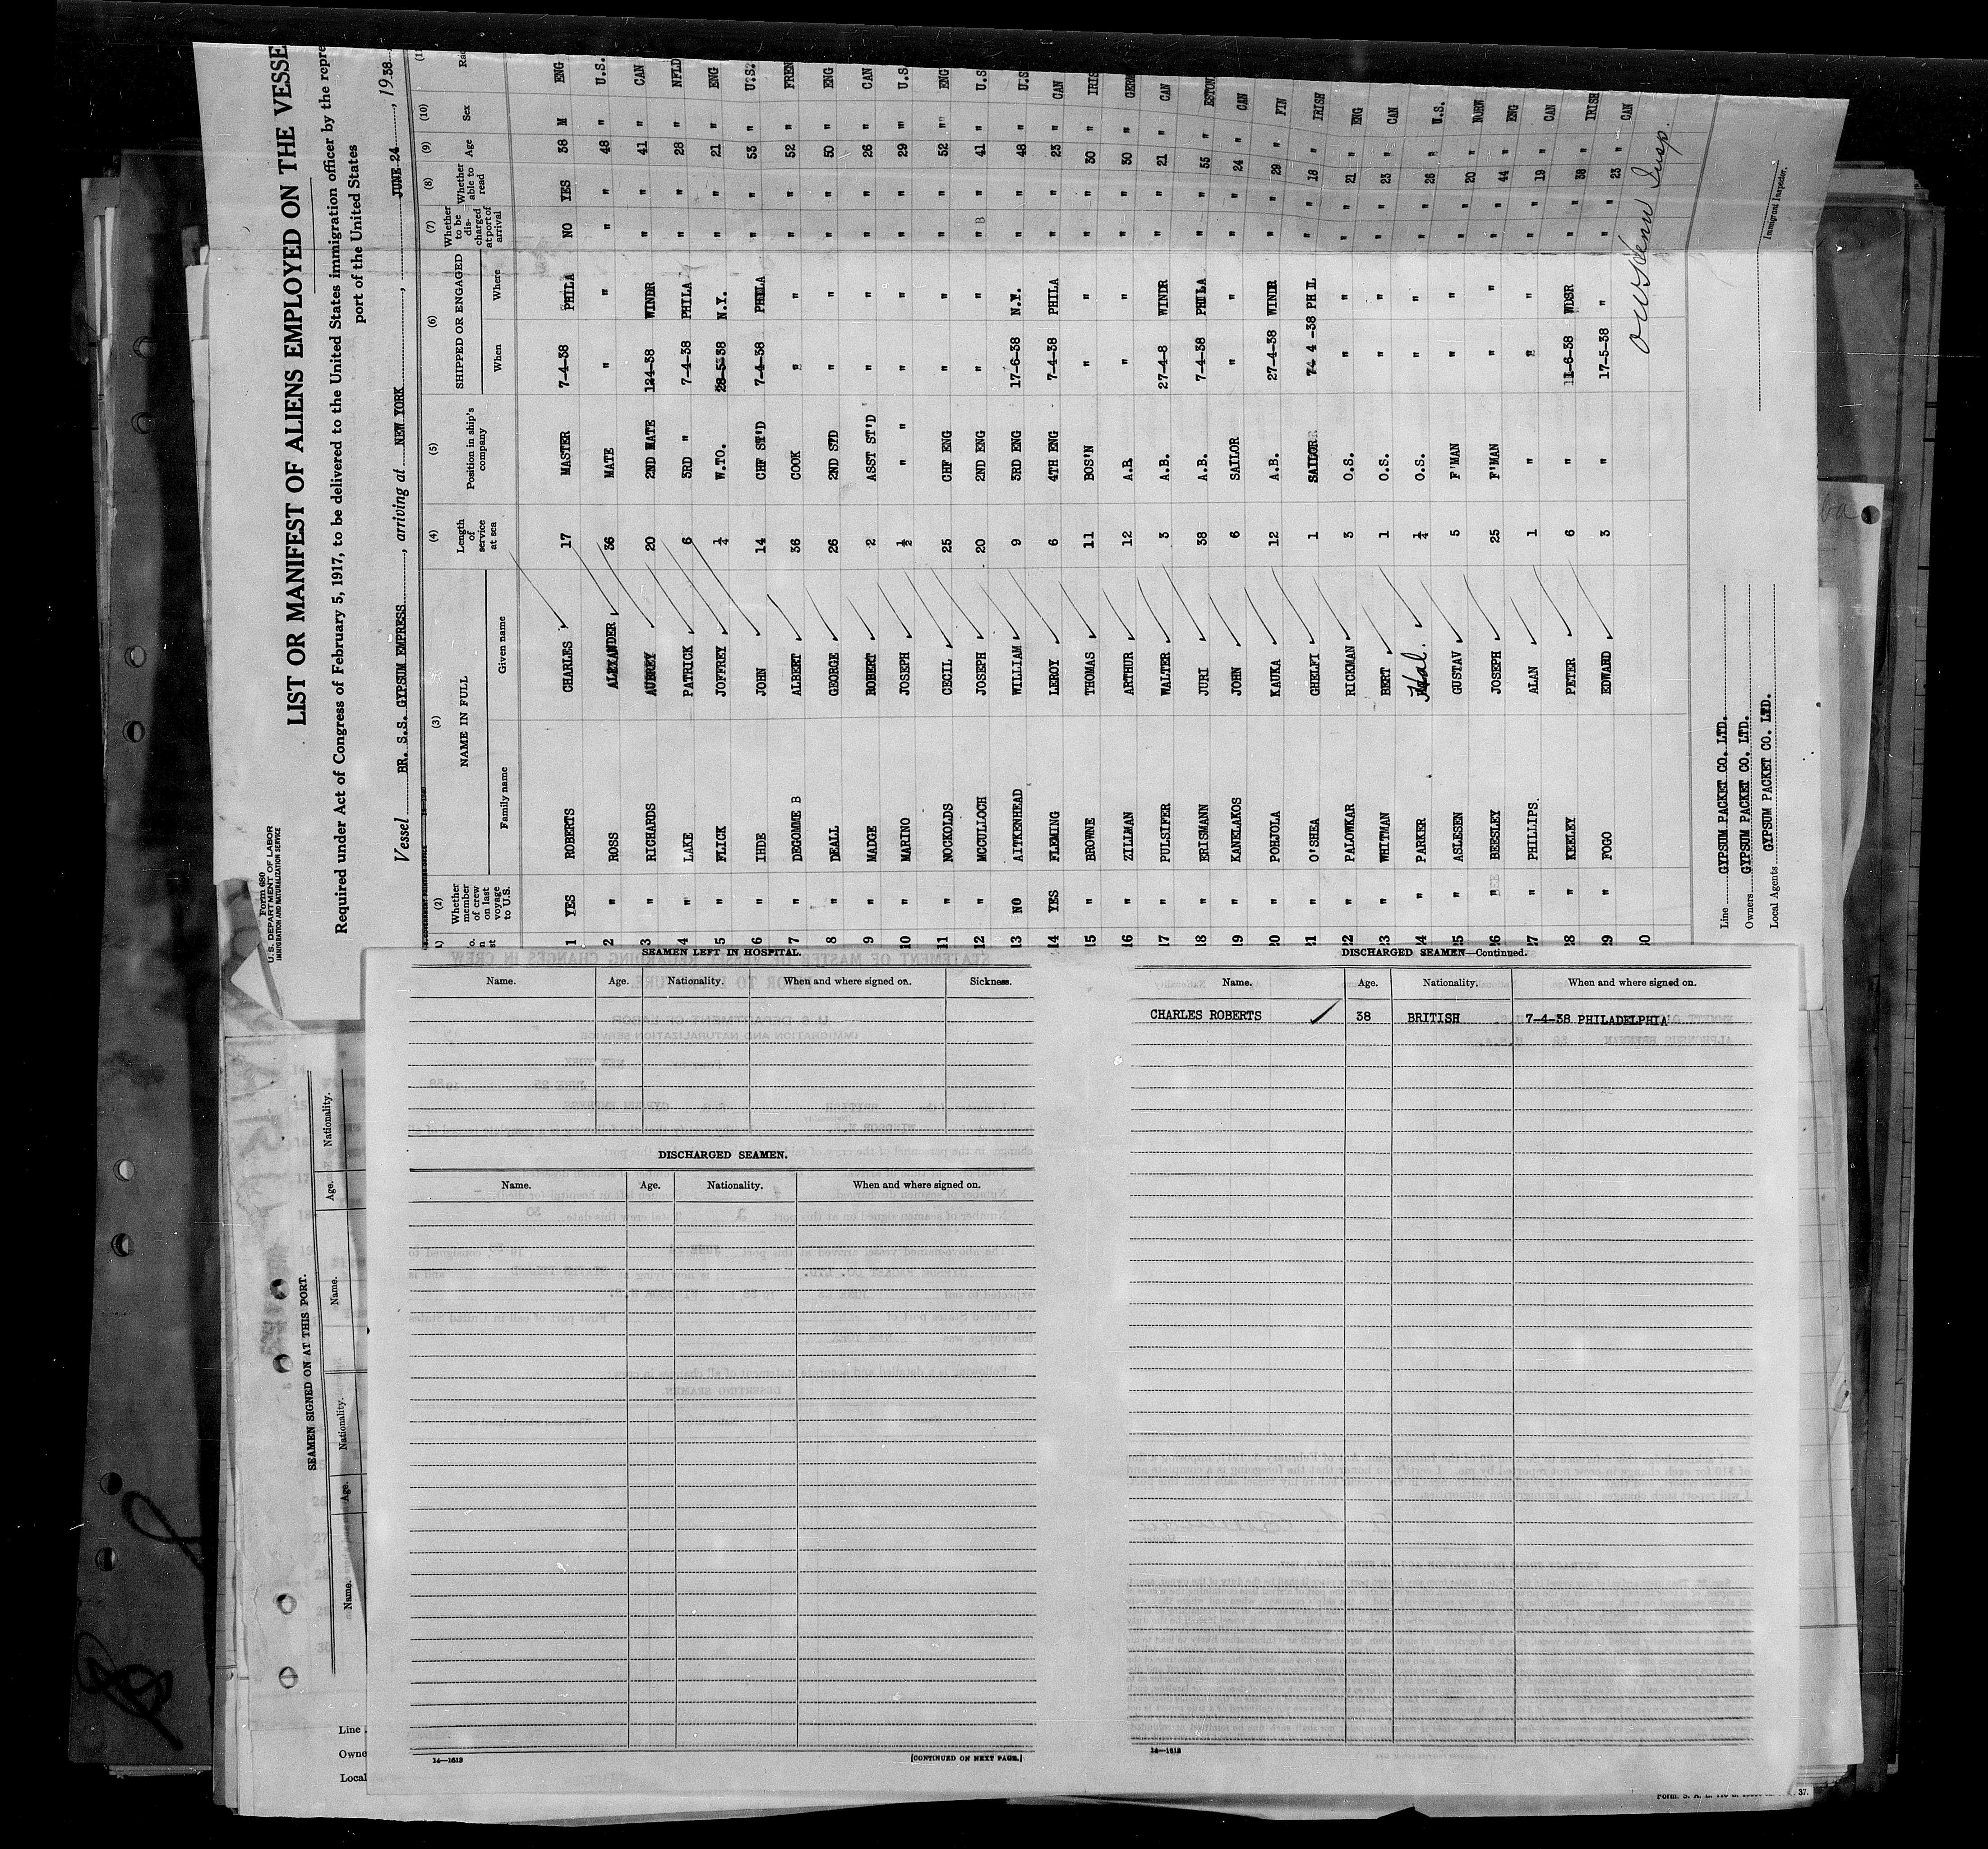 Form 680
U. S. DEPARTMENT OF LABOR
IMMIGRATION AND NATURALIZATION SERVICE
LIST OR MANIFEST OF ALIENS EMPLOYED ON THE VESSE
Required under Act of Congress of February 5, 1917, to be delivered to the United States immigration officer by the repre
port of the United States
Vessel BR. S.S. GYPSUM EMPRESS, arriving at NEW YORK, JUNE 24, 1938
(2) (3) (4) (5) (6) (7) (8) (9) (10)
Whether member of crew on last voyage to U.S. NAME IN FULL Family name Given name Length of service at sea Position in ship's company SHIPPED OR ENGAGED When Where Whether to be discharged at port of arrival Whether able to read Age Sex
1 YES ROBERTS CHARLES 17 MASTER 7-4-38 PHILA NO YES 38 M ENG
2 " ROSS ALEXANDER 36 MATE " " " " 48 " U.S.
3 " RICHARDS AUBREY 20 2ND MATE 124-38 WINDR " " 41 " CAN
4 " LAKE PATRICK 6 3RD " 7-4-38 PHILA " " 28 " NFLD
5 " FLICK JOFFREY 1/4 W.TO. 28-5-38 N.Y. " " 21 " ENG
6 " IHDE JOHN 14 CHF ST'D 7-4-38 PHILA " " 53 " U.S.
7 " DEGOMME B ALBERT 36 COOK " " " " 52 " FREN
8 " DEALL GEORGE 26 2ND STD " " " " 50 " ENG
9 " MADGE ROBERT 2 ASST ST'D " " " " 26 " CAN
10 " MARINO JOSEPH 1/2 " " " " " " 29 " U.S.
11 " NOCKOLDS CECIL 25 CHF ENG " " " " 52 " ENG
12 " MCCULLOCH JOSEPH 20 2ND ENG " " " B " 41 " U.S
13 NO AITKENHEAD WILLIAM 9 3RD ENG 17-6-38 N.Y. " " 48 " U.S
14 YES FLEMING LEROY 6 4TH ENG 7-4-38 PHILA " " 23 " CAN
15 " BROWNE THOMAS 11 BOS'N " " " " 30 " IRIS
16 " ZILLMAN ARTHUR 12 A.B. " " " " 30 " GERM
17 " PULSIFER WALTER 3 A.B. 27-4-8 WINDR " " 21 " CAN
18 " ERISMANN JURI 38 A.B. 7-4-38 PHILA " " 55 " ESTON
19 " KANELAKOS JOHN 6 SAILOR " " " " 24 " CAN
20 " POHJOLA KAUKA 12 A.B. 27-4-38 WINDR " " 29 " FIN
21 " O'SHEA GHELFI 1 SAILOR 74 4 -38 PH IL " " 18 " IRISH
22 " PALOWKAR RICKMAN 3 O.S. " " " " 21 " ENG
23 " WHITMAN BERT 1 O.S. " " " " 23 " CAN
24 " PARKER Hal. 1/4 O.S. " " " " 26 " U.S.
25 " ASLESEN GUSTAV 5 F'MAN " " " " 20 " NORW
26 " BEESLEY JOSEPH 25 F'MAN " " " " 44 " ENG
27 " PHILLIPS. ALAN 1 " " " " " 19 " CAN
28 " KEELEY PETER 6 " 11-6-38 WDSR " " 38 " IRISH
29 " FOGO EDWARD 3 " 17-5-38 " " " 23 " CAN
30
Line GYPSUM PACKET CO. LTD.
Owners GYPSUM PACKET CO. LTD.
Local Agents GYPSUM PACKET CO. LTD.
Insp.
Immigrant Inspector.
SEAMEN LEFT IN HOSPITAL.
Name. Age. Nationality. When and where signed on. Sickness.
DISCHARGED SEAMEN.
Name. Age. Nationality. When and where signed on.
14—1613
[CONTINUED ON NEXT PAGE.]
DISCHARGED SEAMEN—Continued.
Name. Age. Nationality. When and where signed on.
CHARLES ROBERTS 38 BRITISH 7-4-38 PHILADELPHIA
14—1613
SEAMEN SIGNED ON AT THIS PORT.
Name. Age. Nationality. Name. Age. Nationality.
Line
Owne
Local
37.